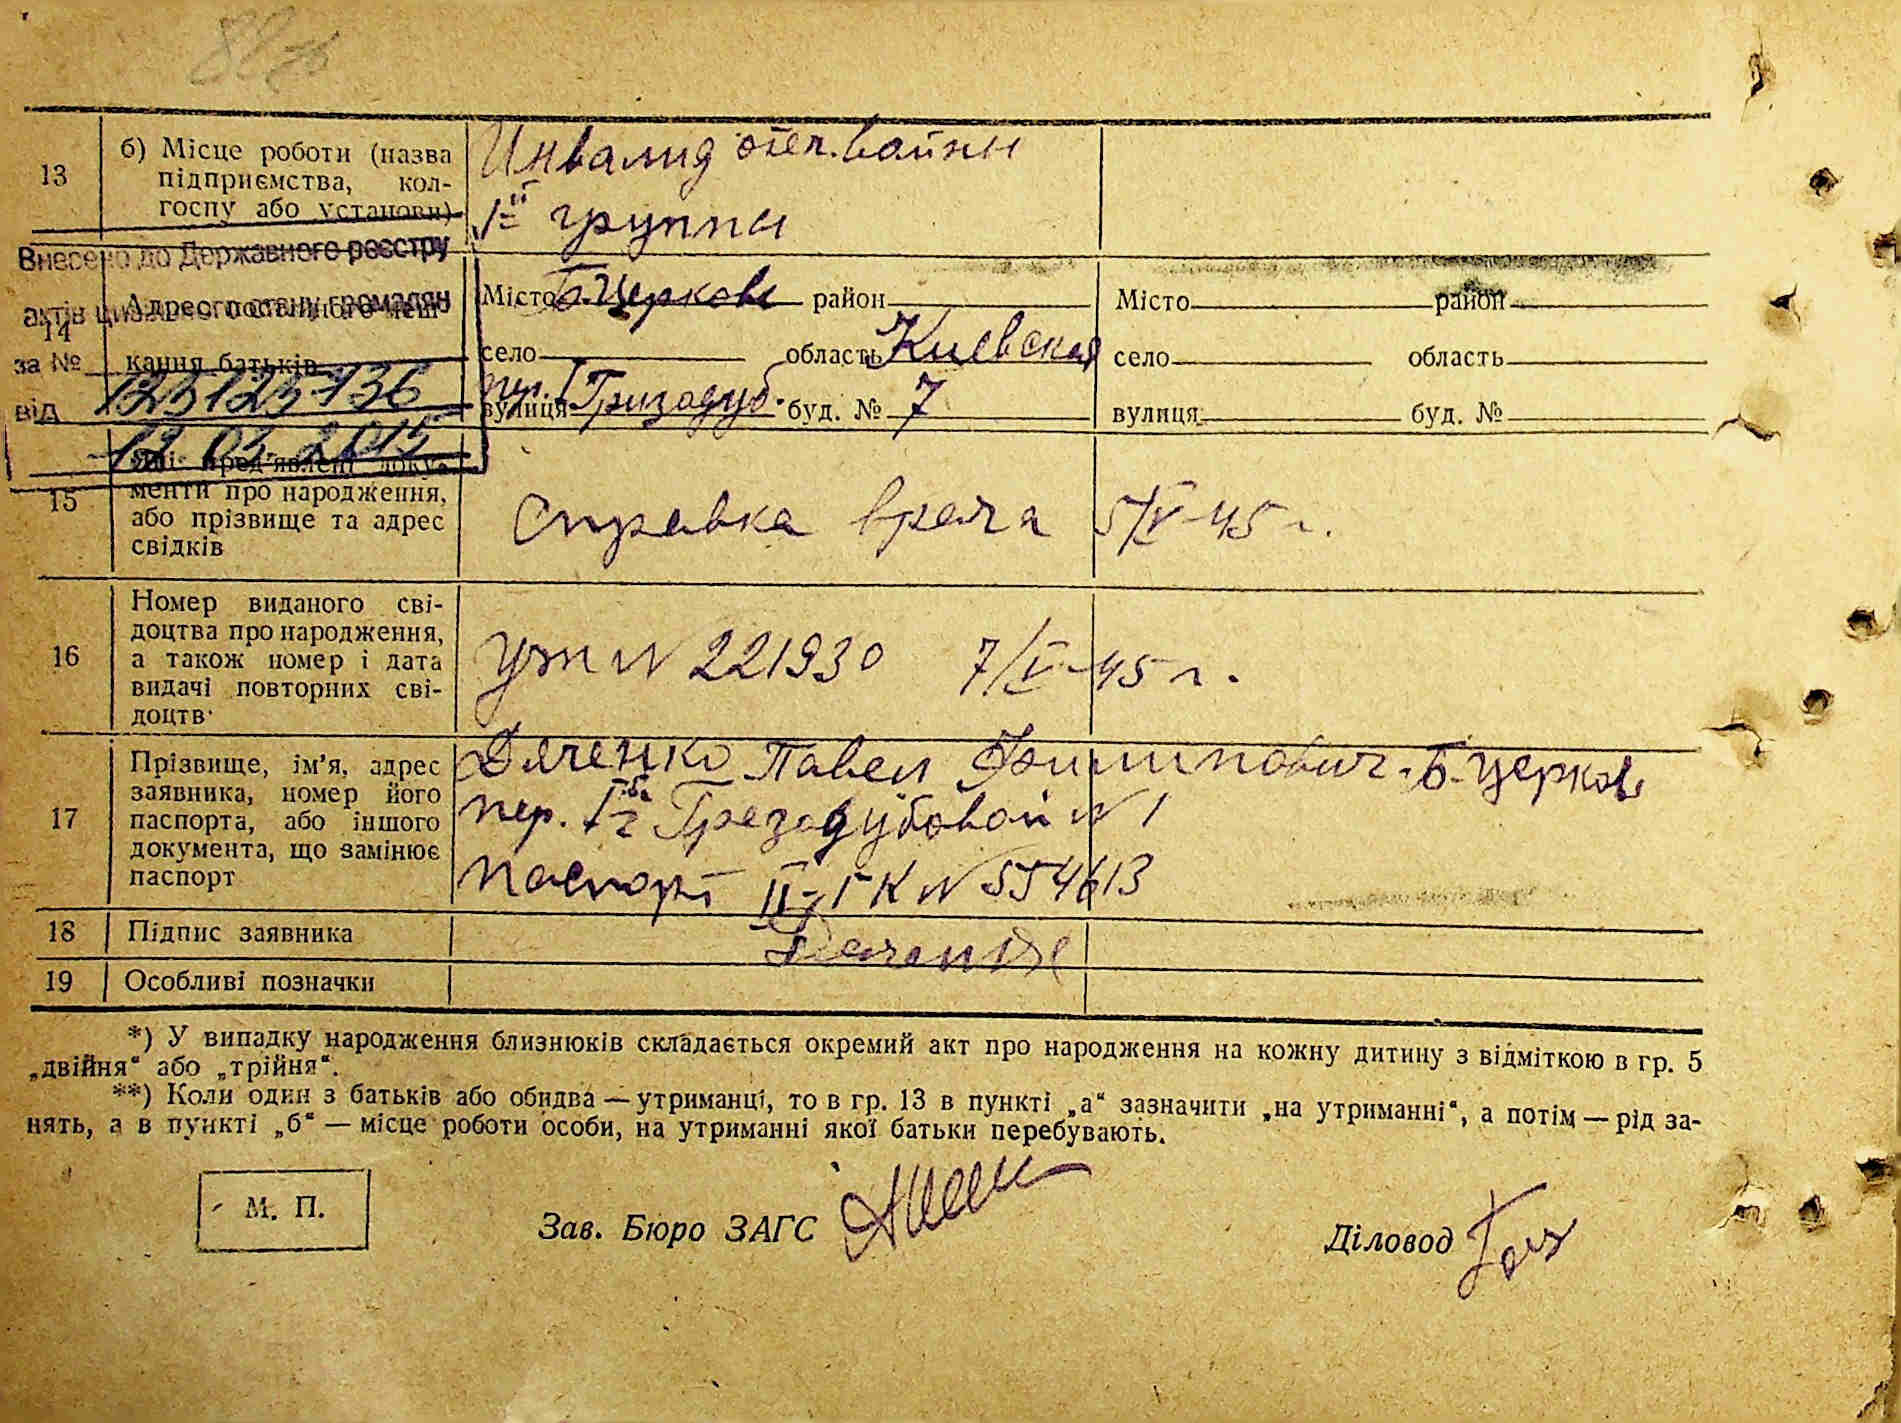 13
б) Місце роботи (назва
підприємства, кол-
госпу або установи)
Инвалид отеч. войны
I-й группы
Внесено до Державного реєстру
актів цивільного стану громадян
за №
123123736
від
12.03.2015
14
Адреса постійного меш-
кання батьків
Місто Б. Церковь район
село область Киевская
вулиця Гризодуб. буд. № 7
Місто район
село область
вулиця буд. №
15
Які пред'явлені доку-
менти про народження,
або прізвище та адрес
свідків
справка врача 5/V-45 г.
16
Номер виданого сві-
доцтва про народження,
а також номер і дата
видачі повторних сві-
доцтв
N 221930 7/V-45 г.
17
Прізвище, ім'я, адрес
заявника, номер його
паспорта, або іншого
документа, що замінює
паспорт
Дяченко Павел Филипович. Б-Церковь
пер. Грезодубовой N 1
паспорт N 554613
18
Підпис заявника
19
Особливі позначки
*) У випадку народження близнюків складається окремий акт про народження на кожну дитину з відміткою в гр. 5
„двійня“ або „трійня“.
**) Коли один з батьків або обидва — утриманці, то в гр. 13 в пункті „а“ зазначити „на утриманні“, а потім — рід за-
нять, а в пункті „б“ — місце роботи особи, на утриманні якої батьки перебувають.
М. П.
Зав. Бюро ЗАГС
Діловод